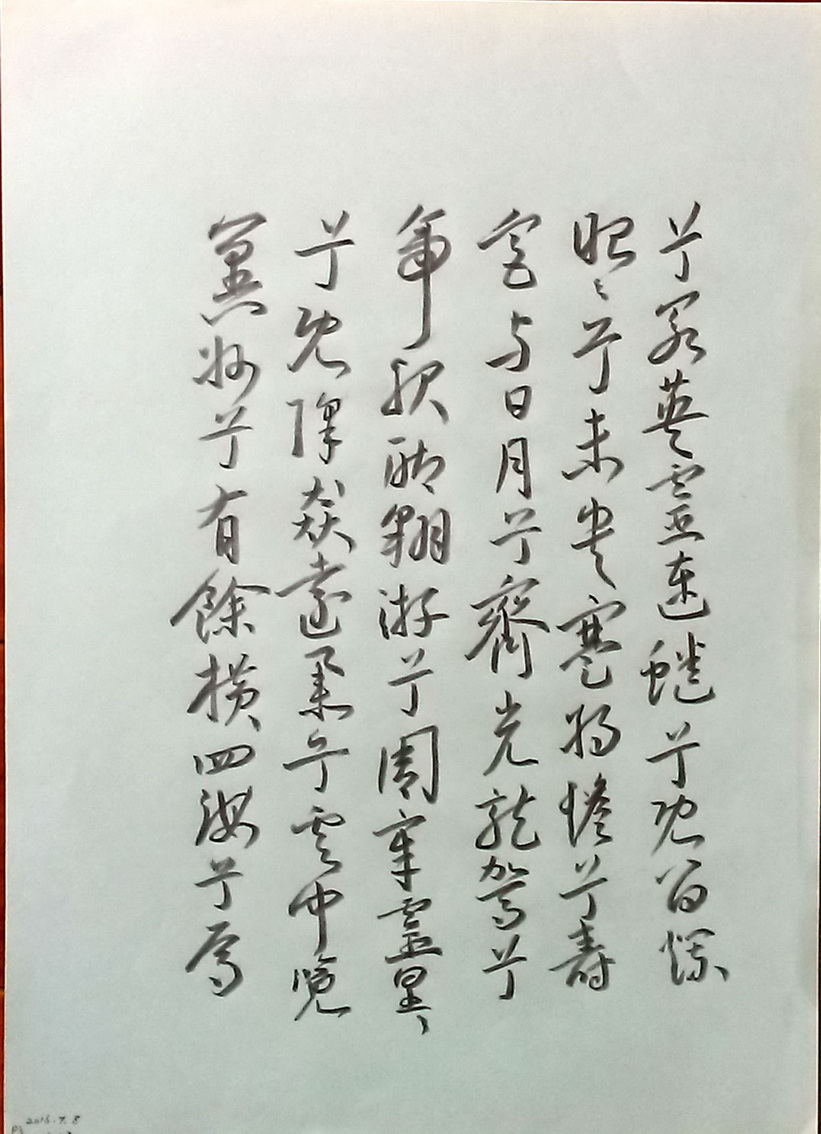 兮若英靈連蜷兮既留爛
昭〻兮未央蹇將憺兮壽
宮与日月兮齊光龍駕兮
帝服聊翱游兮周章靈皇〻
兮既降猋遠舉兮雲中覽
冀州兮有餘橫四海兮焉
2016.7.8